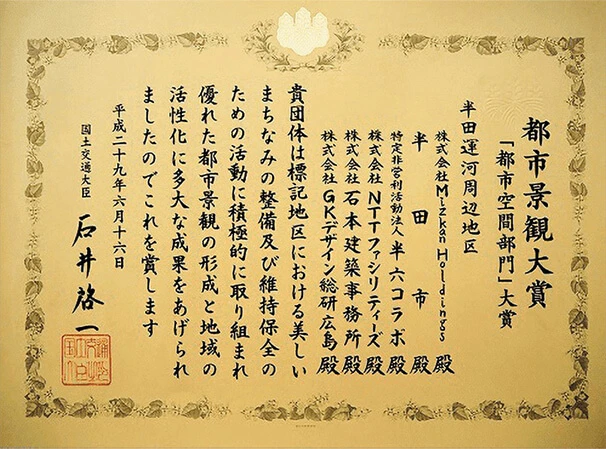 都市景観大賞
「都市空間部門」大賞
半田運河周辺地区
株式会社Mizkan Holdings 殿
半田市 殿
特定非営利活動法人 半六コラボ 殿
株式会社NTTファシリティーズ 殿
株式会社 石本建築事務所 殿
株式会社GKデザイン総研広島 殿
貴団体は標記地区における美しい
まちなみの整備及び維持保全の
ための活動に積極的に取り組まれ
優れた都市景観の形成と地域の
活性化に多大な成果をあげられ
ましたのでこれを賞します
平成二十九年六月十六日
国土交通大臣 石井啓一